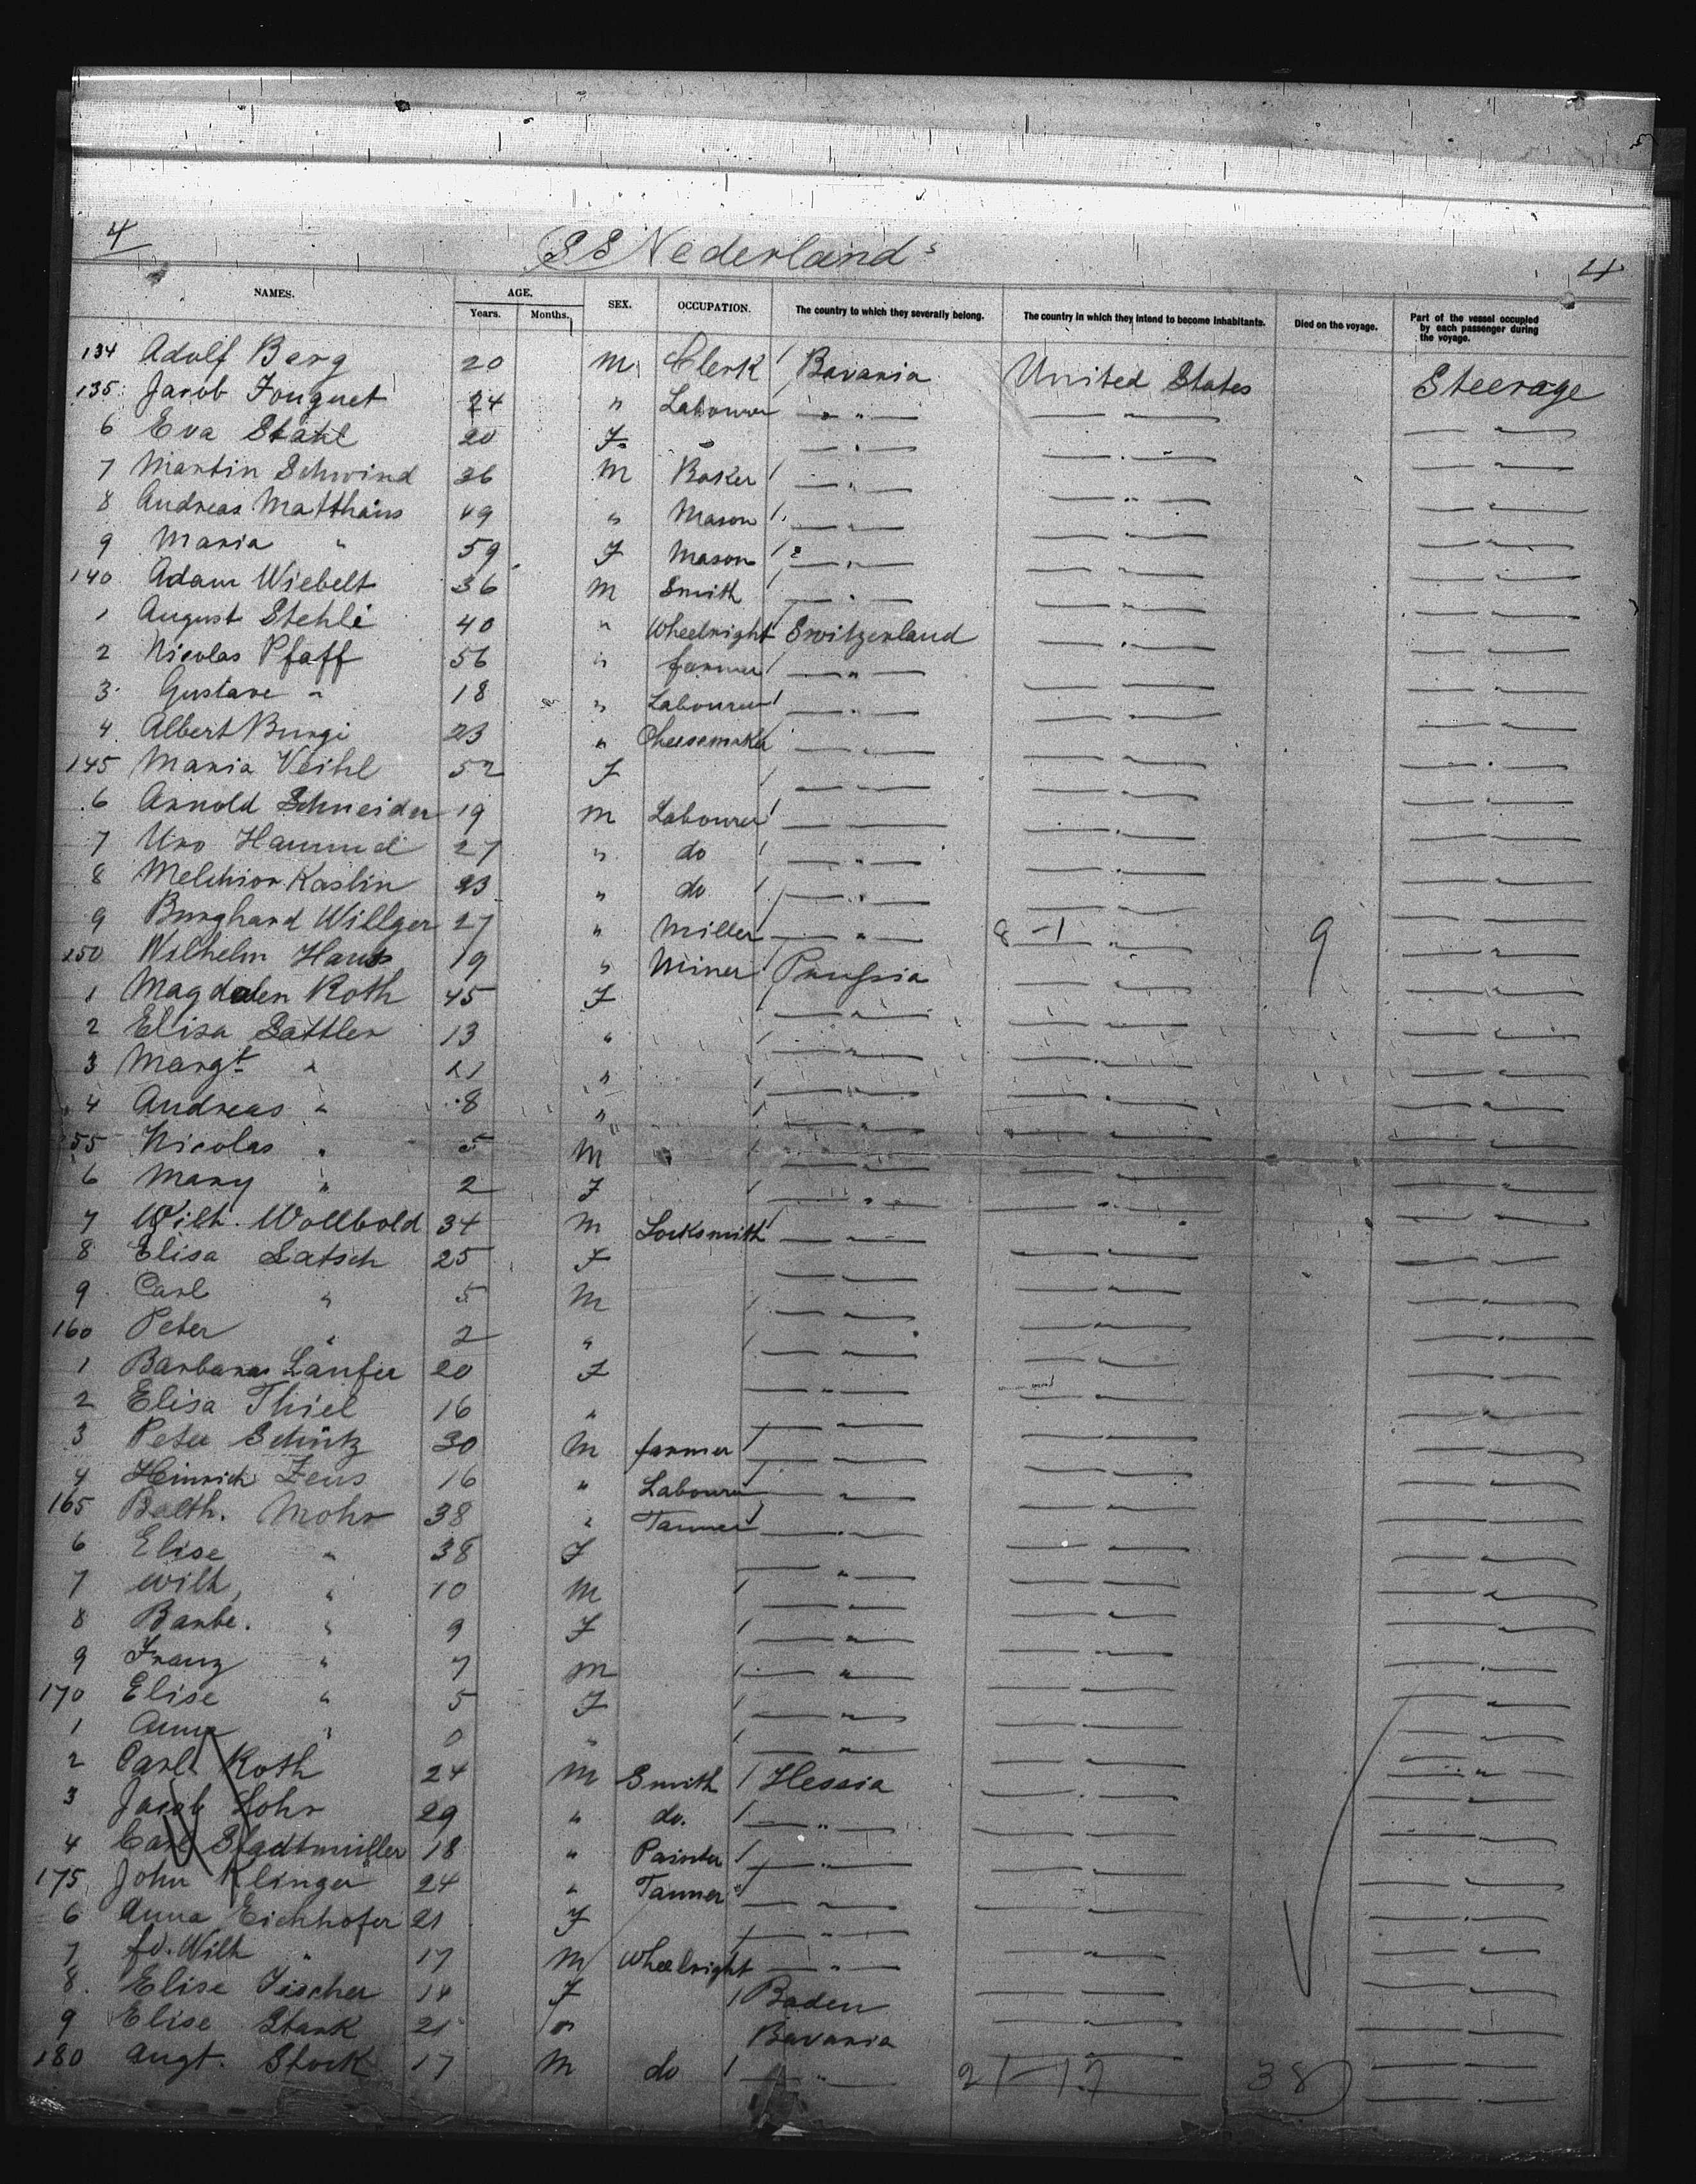 4
SS Nederland
4
NAMES. AGE. SEX. OCCUPATION. The country to which they severally belong. The country in which they intend to become inhabitants. Died on the voyage. Part of the vessel occupied by each passenger during the voyage.
Years. Months.
134 Adolf Berg 20 M Clerk / Bavaria United States Steerage
135 Jacob Fouquet 24 " Labourer — " — — " — — " —
6 Eva Stahl 20 F — " — — " — — " —
7 Martin Schwind 36 M Baker / — " — — " — — " —
8 Andreas Matthäus 49 " Mason / — " — — " — — " —
9 Maria " 59 F Mason / — " — — " — — " —
140 Adam Wiebelt 36 M Smith / — " — — " — — " —
1 August Stehli 40 " Wheelright / Switzerland — " — — " —
2 Nicolas Pfaff 56 " farmer / — " — — " — — " —
3 Gustave " 18 " Labourer / — " — — " — — " —
4 Albert Burgi 23 " Cheesemaker — " — — " — — " —
145 Maria Veihl 52 F / — " — — " — — " —
6 Arnold Schneider 19 M Labourer / — — — " — — " —
7 27 " do / — " — — " — — " —
8 Melchior Kaslin 23 " do / — " — — " — — " —
9 Burghard Willger 27 " Miller / — " — 8 – 1 — " — 9 — " —
150 Wilhelm Haus 19 " Miner / Prussia — " — — " —
1 Magdalen Roth 45 F — " — — " — — " —
2 Elisa Sattler 13 " / — " — — " — — " —
3 Margt " 11 " / — " — — " — — " —
4 Andreas " 8 " / — " — — " — — " —
55 Nicolas " 5 M / — " — — " — — " —
6 Mary " 2 F / — " — — " — — " —
7 Wilh. Wollbold 34 M Locksmith / — " — — " — — " —
8 Elisa Latsch 25 F — " — — " — — " —
9 Carl " 5 M / — " — — " — — " —
160 Peter " 2 " / — " — — " — — " —
1 Barbara Laufer 20 F — " — — " — — " —
2 Elisa Thiel 16 " — " — — " — — " —
3 Peter Schütz 30 M farmer / — " — — " — — " —
4 Heinrich Zeus 16 " Labourer / — " — — " — — " —
165 Balth. Mohr 38 " Tanner / — " — — " — — " —
6 Elise " 38 F — " — — " — — " —
7 Wilh, " 10 M / — " — — " — — " —
8 Barbe. " 9 F / — " — — " — — " —
9 Franz " 7 M / — " — — " — — " —
170 Elise " 5 F / — " — — " — — " —
1 Anna " 0 " / — " — — " — — " —
2 Carl Roth 24 M Smith / Hessia — " — — " —
3 Jacob Lohr 29 " do. / — " — — " — — " —
4 Carl Stadtmüller 18 " Painter / — " — — " — — " —
175 John Klinger 24 " Tanner / — " — — " — — " —
6 Anna Eichhofer 21 F / — " — — " — — " —
7 fd. Wilh " 17 M Wheelright — " — — " — — " —
8 Elise Fischer 14 F / Baden — " — — " —
9 Elise Stark 21 " Bavaria — " — — " —
180 Augt. Stork 17 M do / — " — 21 – 17 38 — " —